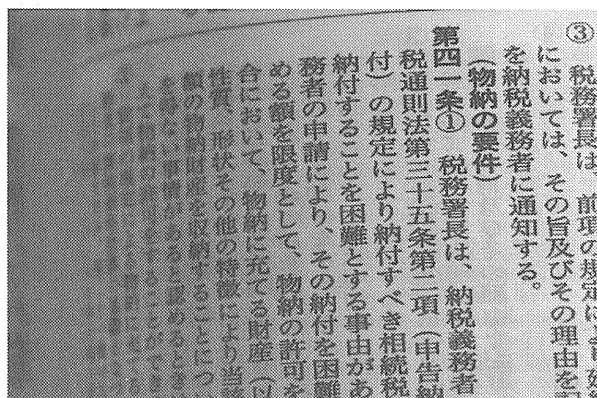 ③ 税務署長は、前項の規定により延納
においては、その旨及びその理由を記
を納税義務者に通知する。
（物納の要件）
第四一条① 税務署長は、納税義務者
税通則法第三十五条第二項（申告納
付）の規定により納付すべき相続税
納付することを困難とする事由があ
務者の申請により、その納付を困難
める額を限度として、物納の許可を
合において、物納に充てる財産（以
性質、形状その他の特徴により当該
額の物納財産を収納することについ
を得ない事情があると認めるときは
えて物納の許可をすることができ